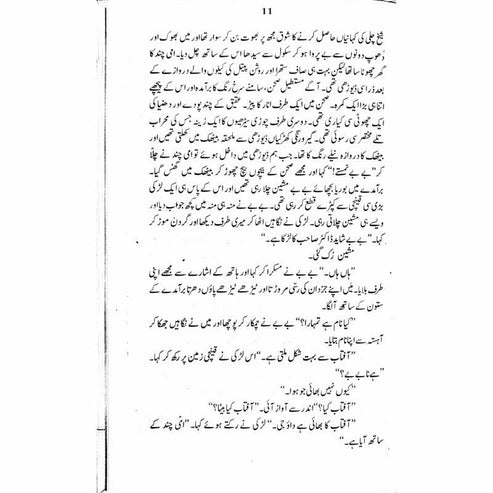 11
شیخ چلی کی کہانیاں حاصل کرنے کا شوق مجھ پر بھوت بن کر سوار تھا اور میں بھوک اور
دُھوپ دونوں سے بے پروا ہو کر سکول سے سیدھا اس کے ساتھ چل دیا۔ امی چند کا
گھر چھوٹا سا تھا لیکن بہت ہی صاف ستھرا اور روشن۔ پیتل کی کیلوں والے دروازے کے
بعد ذرا سی ڈیوڑھی تھی۔ آگے مستطیل صحن، سامنے سرخ رنگ کا برآمدہ اور اس کے پیچھے
اتنا ہی بڑا کمرہ۔ صحن میں ایک طرف انار کا پیڑ۔ عقیق کے چند پودے اور دھنیا کی
ایک چھوٹی سی کیاری تھی۔ دوسری طرف چوڑی سیڑھیوں کا ایک زینہ جس کی محراب
تلے مختصر سی رسوئی تھی۔ گیرو رنگی کھڑکیاں ڈیوڑھی سے ملحقہ بیٹھک میں کھلتی تھیں اور
بیٹھک کا دروازہ نیلے رنگ کا تھا۔ جب ہم ڈیوڑھی میں داخل ہوئے تو امی چند نے چلّا
کر ”بے بے نمستے!“ کہا اور مجھے صحن کے بیچوں بیچ چھوڑ کر بیٹھک میں گھس گیا۔
برآمدے میں بوریا بچھائے بے بے مشین چلا رہی تھیں اور اس کے پاس ہی ایک لڑکی
بڑی سی قینچی سے کپڑے قطع کر رہی تھی۔ بے بے نے منہ ہی منہ میں کچھ جواب دیا اور
ویسے ہی مشین چلاتی رہی۔ لڑکی نے نگاہیں اٹھا کر میری طرف دیکھا اور گردن موڑ کر
کہا۔ ”بے بے شاید ڈاکٹر صاحب کا لڑکا ہے۔“
مشین رُک گئی۔
”ہاں ہاں۔“ بے بے نے مسکرا کر کہا اور ہاتھ کے اشارے سے مجھے اپنی
طرف بلایا۔ میں اپنے جزدان کی رسّی مروڑتا اور ٹیڑھے ٹیڑھے پاؤں دھرتا برآمدے کے
ستون کے ساتھ آ لگا۔
”کیا نام ہے تمہارا؟“ بے بے نے چمکار کر پوچھا اور میں نے نگاہیں جھکا کر
آہستہ سے اپنا نام بتایا۔
”آفتاب سے بہت شکل ملتی ہے۔“ اس لڑکی نے قینچی زمین پر رکھ کر کہا۔
”ہے نا بے بے؟“
”کیوں نہیں بھائی جو ہوا۔“
”آفتاب کیا؟“ اندر سے آواز آئی۔ ”آفتاب کیا بیٹا؟“
”آفتاب کا بھائی ہے داؤ جی۔“ لڑکی نے رکتے ہوئے کہا۔ ”امّی چند کے
ساتھ آیا ہے۔“